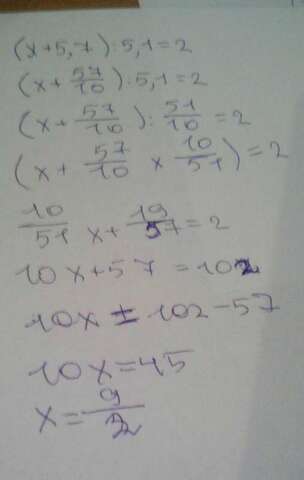 (x+5,7):5,1=2
(x+57/10):5,1=2
(x+57/10):51/10=2
(x+57/10 x 10/51)=2
10/51 x+19/57=2
10x+57=102
10x=102-57
10x=45
x=9/2